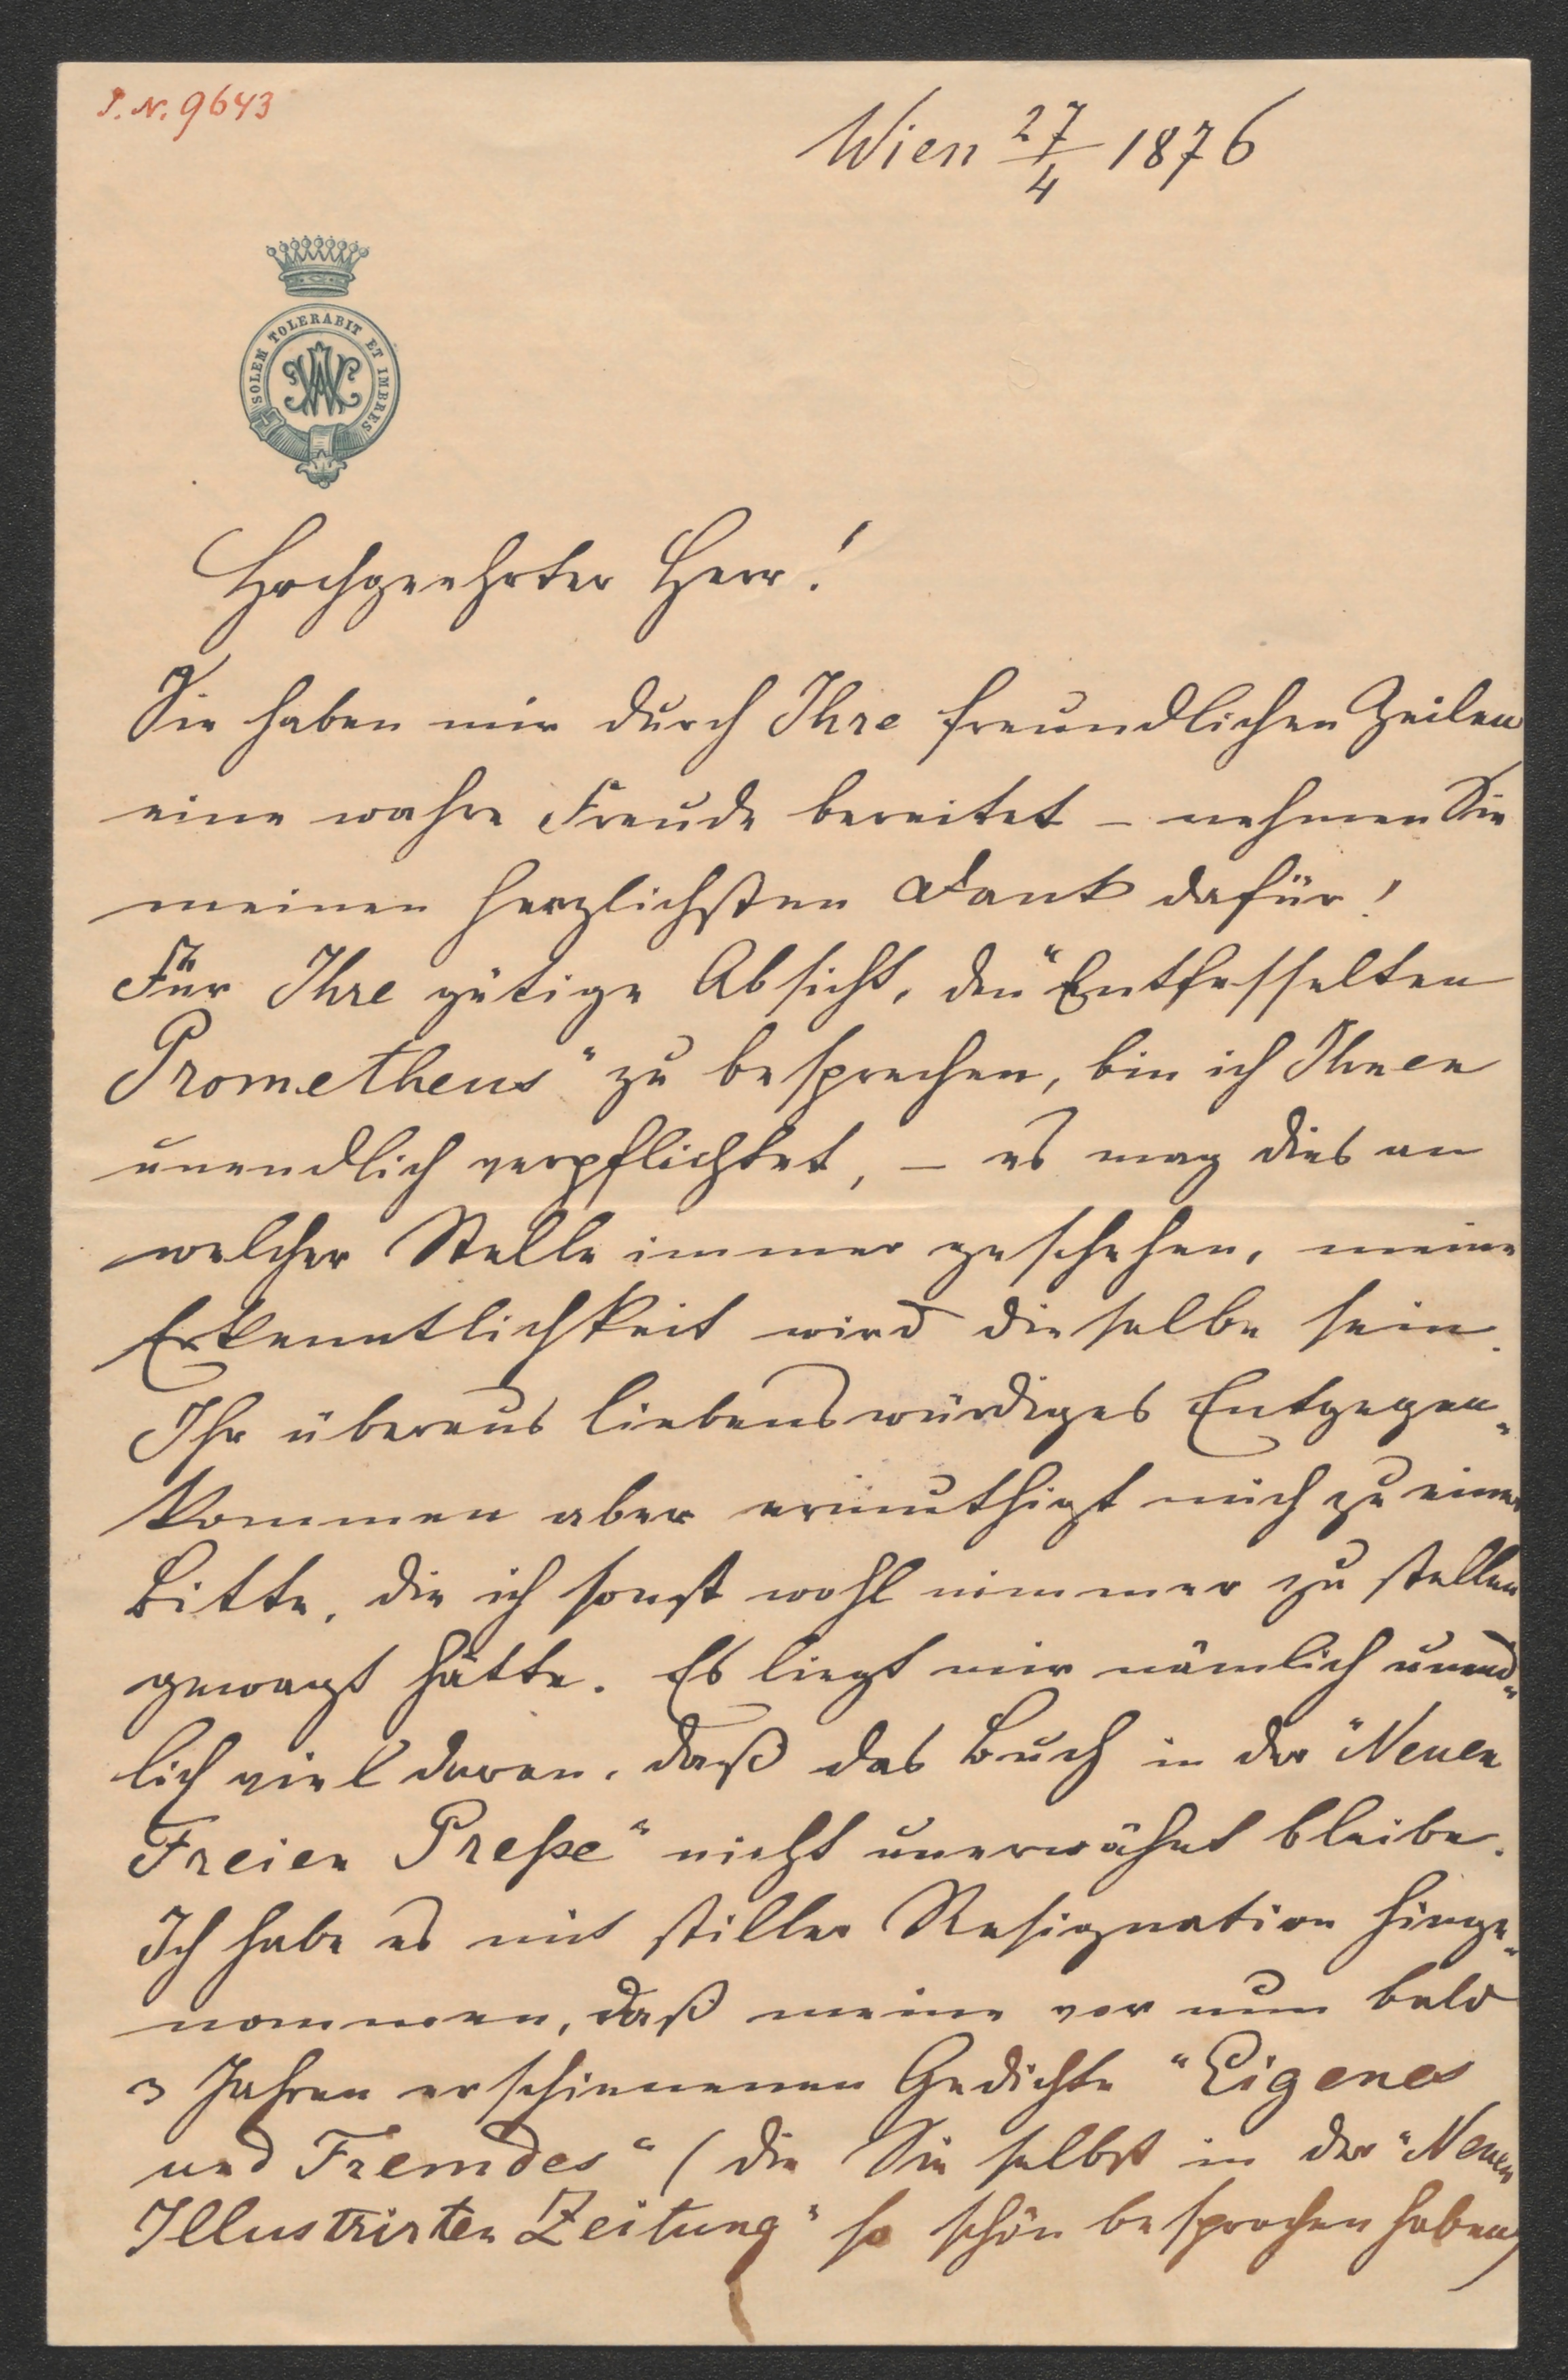 I. N. 9643
Wien 27/4 1876
SOLEM TOLERABIT ET IMBRES
Hochgeehrter Herr!
Sie haben mir durch Ihre freundlichen Zeilen
eine wahre Freude bereitet – nehmen Sie
meinen herzlichsten Dank dafür!
Für Ihre gütige Absicht, den "Entfesselten
Prometheus" zu besprechen, bin ich Ihnen
unendlich verpflichtet, – es mag dies an
welcher Stelle immer geschehen, meine
Erkenntlichkeit wird dieselbe sein.
Ihr überaus liebenswürdiges Entgegen-
kommen aber ermuthigt mich zu einer
Bitte, die ich sonst wohl nimmer zu stellen
gewagt hätte. Es liegt mir nämlich unend-
lich viel daran, daß das Buch in der "Neuen
Freien Preße" nicht unerwähnt bleibe.
Ich habe es mit stiller Resignation hinge-
nommen, daß meine vor nun bald
3 Jahren erschienenen Gedichte "Eigenes
und Fremdes" (die Sie selbst in der "Neuen
Illustrirten Zeitung" so schön besprochen haben)